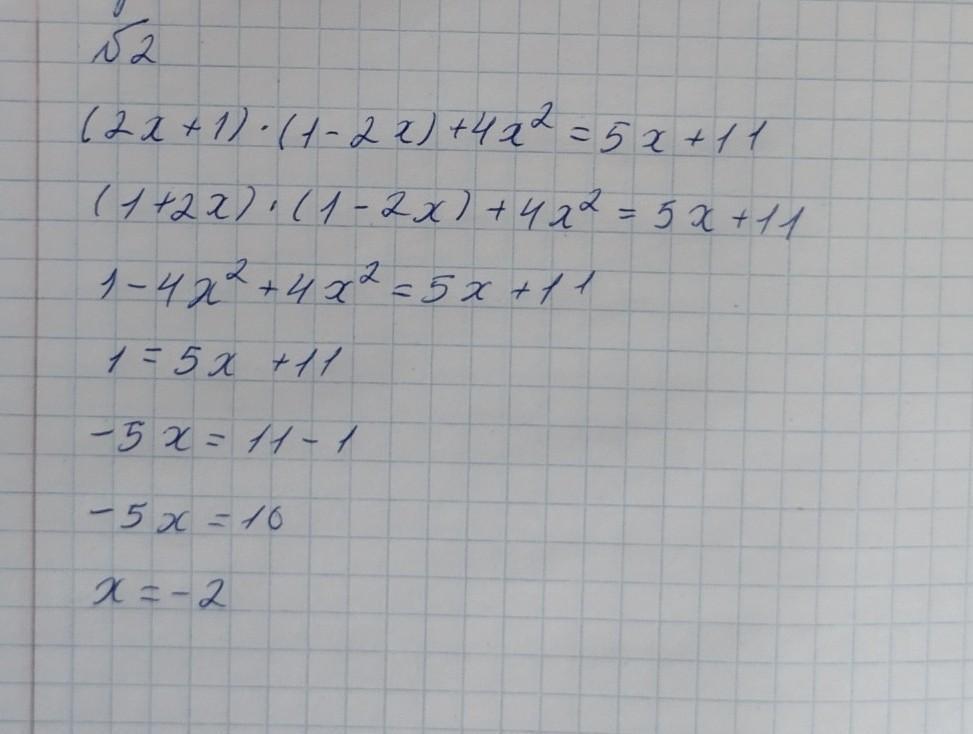 №2
(2x+1)·(1-2x)+4x²=5x+11
(1+2x)·(1-2x)+4x²=5x+11
1-4x²+4x²=5x+11
1=5x+11
-5x=11-1
-5x=10
x=-2